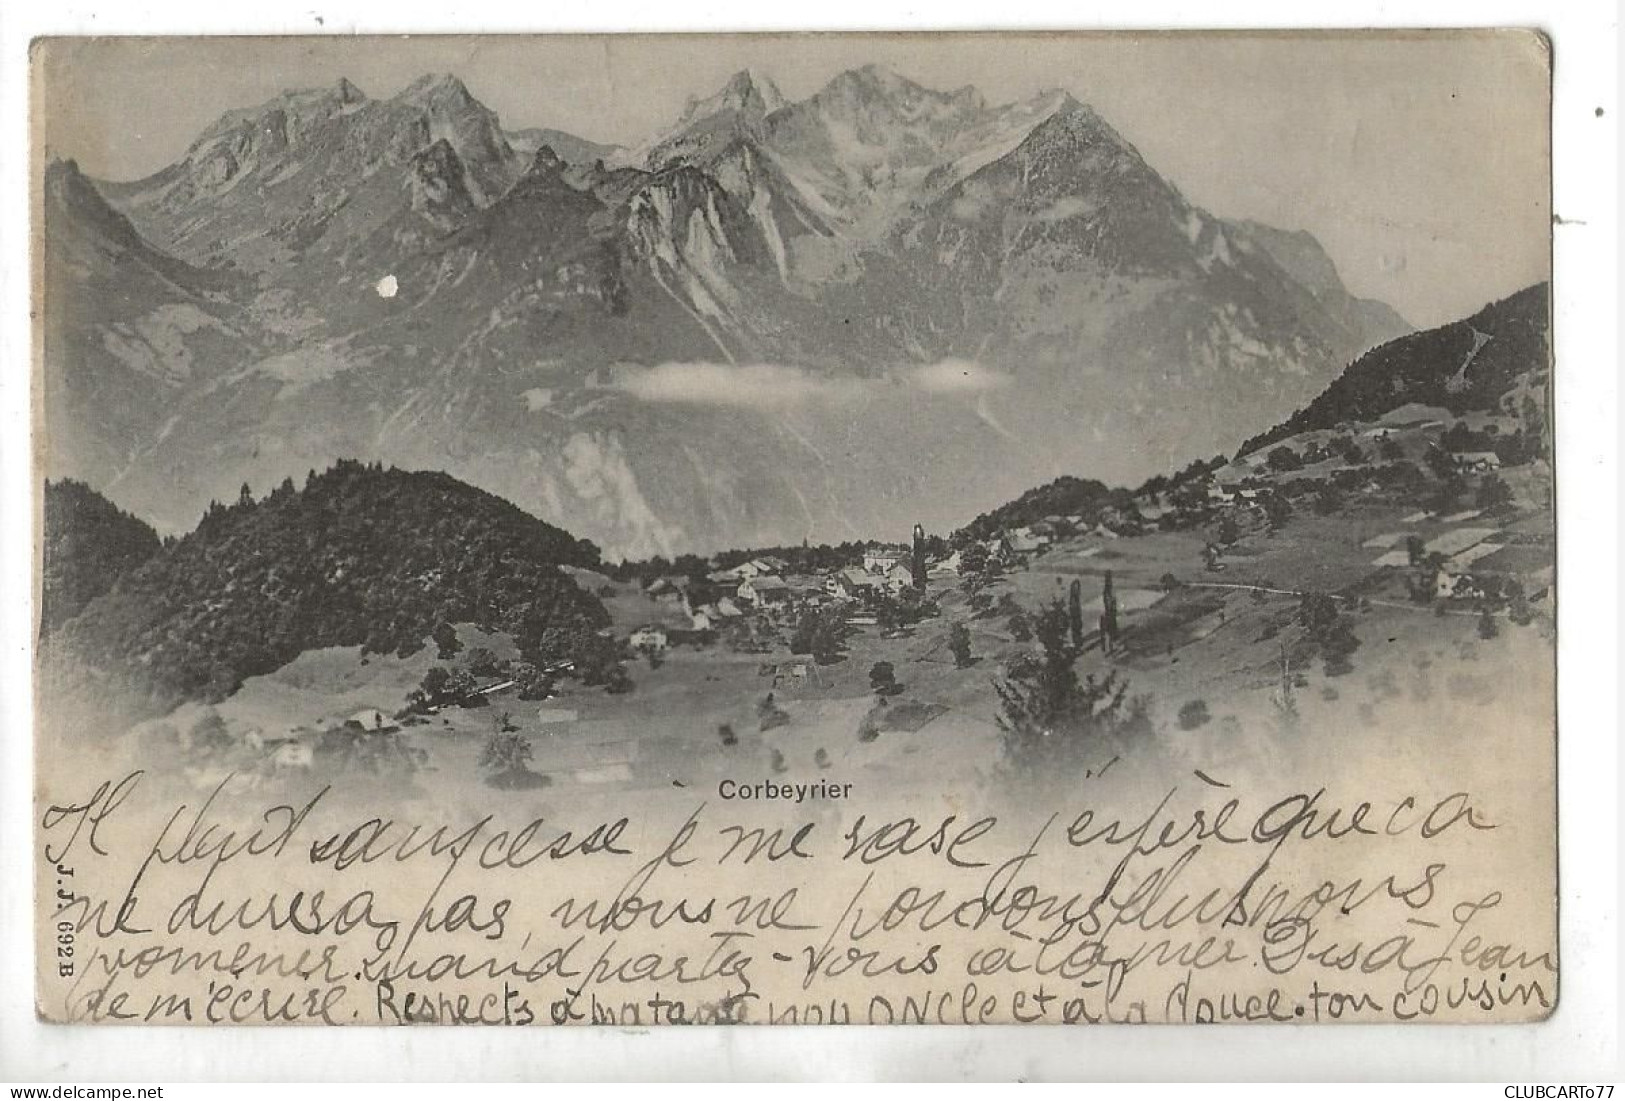 Corbeyrier
Il pleut sans cesse je me rase j'espère que ca
ne durera pas, nous ne pouvons plus nous
promener. Quand partez-vous à la mer. Dis à Jean
de m'écrire. Respects à ma tante mon oncle et à la Douce. ton cousin
J.J. 692B
CLUBCARTo77